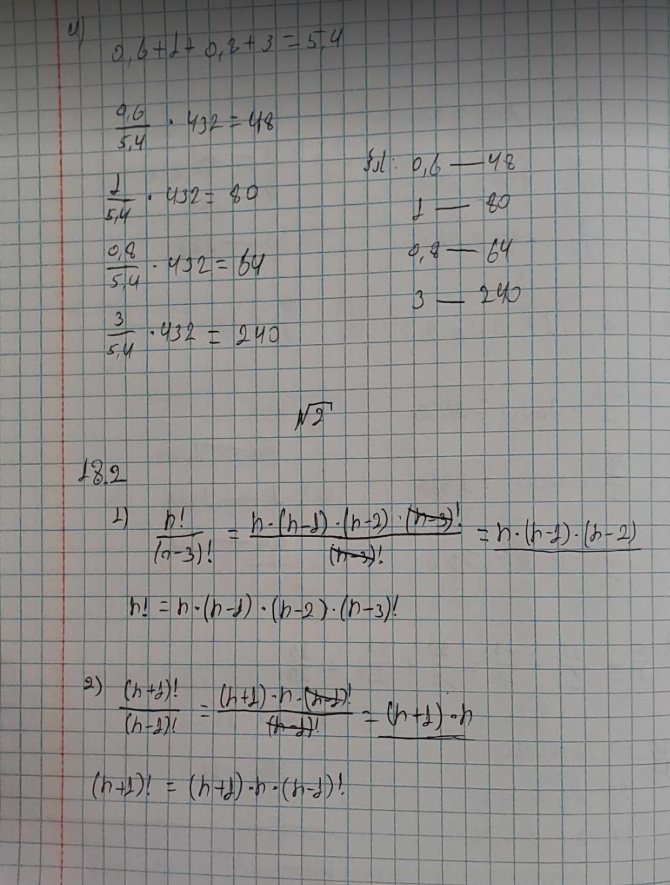 4)
0,6+1+0,8+3=5,4
0,6/5,4 · 432=48
1/5,4 · 432= 80
0,8/5,4 · 432=64
3/5,4 · 432 = 240
0,6 — 48
1 — 80
0,8 — 64
3 — 240
√2
18.2
1) n!/(n-3)! = n·(n-1)·(n-2)·(n-3)!/(n-3)! = n·(n-1)·(n-2)
n! = n·(n-1)·(n-2)·(n-3)!
2) (n+1)!/(n-1)! = (n+1)·n·(n-1)!/(n-1)! = (n+1)·n
(n+1)! = (n+1)·n·(n-1)!